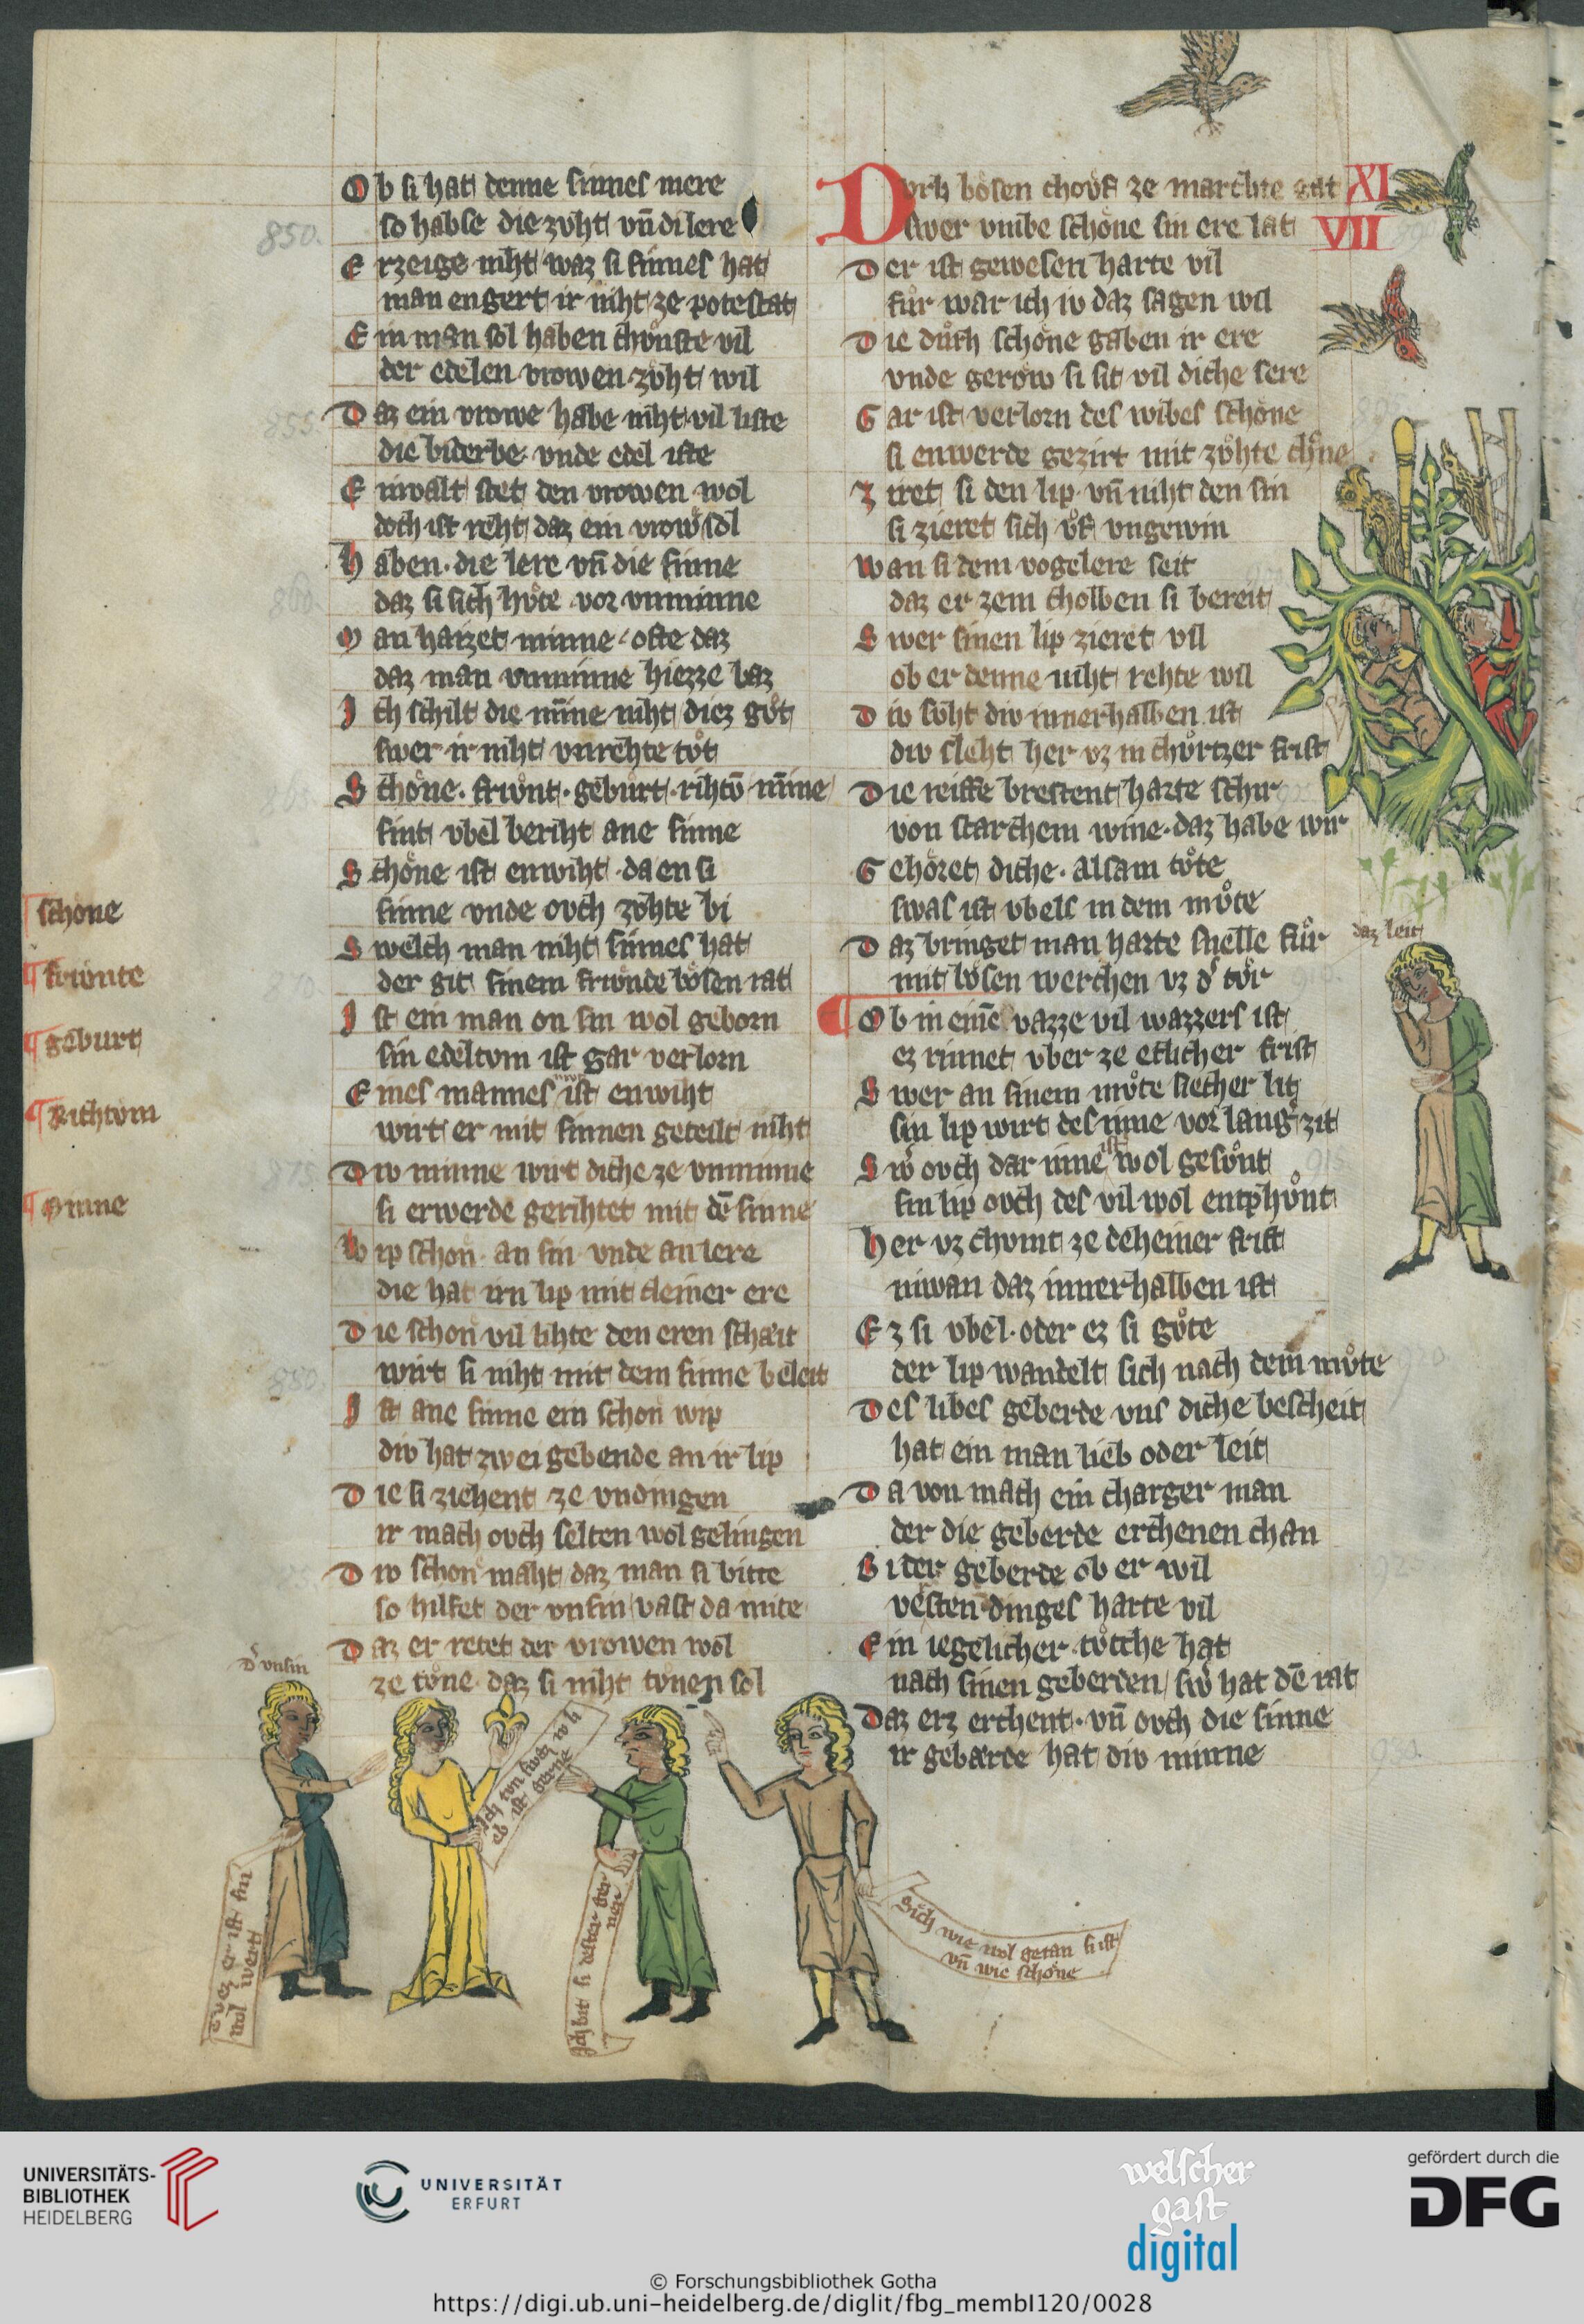 Ob si hat denne sinnes mere
so habse die zvht vn̄ di lere
Erzeige niht waz si sinnes hat
man engert ir niht ze potestat
Ein man sol haben chvͦnste vil
der edelen vrowen zvͦht wil
Daz ein vrowe habe niht vil liste
die biderbe vnde edel iste
Einvalt stet den vrowen wol
doch ist reht daz ein vrowͤ sol
haben die lere vn̄ die sinne
daz si sich hvͦte vor vnminne
Man haizet minne ofte daz
daz man vnminne hiezze baz
Ich schilt die mīne niht diez gvͦt
swer ir niht vnrehte tvͦt
Schoͤne. friwͦnt. gebuͦrt. rihtv̄ mīne
sint vbel beriht ane sinne
Schoͤne ist enwiht da en si
sinne vnde ovch zvͦhte bi
Swelch man niht sinnes hat
der git sinem friwͦnde boͤsen rat
Ist ein man on sin wol geborn
sin edeltvm ist gar verlorn
Eines mannes ist enwiht
wirt er mit sinnen geteilt niht
Div minne wirt diche ze vnminne
si erwerde gerihtet mit dē sinne
Wip schon an sin vnde an lere
die hat irn lip mit cleiner ere
Die schon vil lihte den eren schait
wirt si niht mit dem sinne beleit
Ist ane sinne ein schon wip
div hat zwei gebende an ir lip
Die si ziehent ze vndingen
ir mach ovch selten wol gelingen
Div schon maht daz man si bitte
so hilfet der vnsin vast da mite
Daz er retet der vrowen wol
ze tvͦne daz si niht tvͦnen sol
schone
friwnte
geburt
Richtvm
Minne
Dvrh boͤsen chovf ze marchte gat
swer vmbe schoͤne sin ere lat
XI
VII
Der ist gewesen harte vil
fuͦr war ich iv daz sagen wil
Die duͦrh schoͤne gaben ir ere
vnde gerow si sit vil diche sere
Gar ist verlorn des wibes schoͤne
si enwerde gezirt mit zvͦhte chͦne
Ziret si den lip vn̄ niht den sin
si zieret sich vͦf vngewin
wan si dem vogelere seit
daz er zem cholben si bereit
Swer sinen lip zieret vil
ob er denne niht rehte wil
Div svͦht div innerhalben ist
div sleht her vz in chvͦrtzer frist
Die reiffe brestent harte schir
von starchem wine daz habe wir
Gehoͤret diche alsam tvͦte
swas ist vbels in dem mvͦte
Daz bringet man harte snelle fuͦr
mit boͤsen werchen vz d̾ tvͦr
Ob in einē vazze vil wazzers ist
ez rinnet vber ze etlicher frist
Swer an sinem mvͦte siecher lit
sin lip wirt des inne vor lang zit
Swͦ ovch dar inne ist wol gesvͦnt
sin lip ovch des vil wol enphvͦnt
her vz chvmt ze deheiner frist
niwan daz innerhalben ist
Ez si vbel oder ez si gvͦte
der lip wandelt sich nach dem mvͦte
Des libes geberde vns diche bescheit
hat ein man lieb oder leit
Da von mach ein charger man
der die geberde erchenen chan
Bi der geberde ob er wil
vesten dinges harte vil
Ein iegelicher tvͦtche hat
nach sinen geberden swͦ hat dē rat
Daz erz erchent vn̄ ovch die sinne
ir gebærde hat div minne
daz leit
d̾ vnsin
Tvez er ist sin
wol wert
Ich tvn swez iv li
eb ist gerne
Ich bit si dester ger
nen
Sich wie wol getan si ist
vn̄ wie schoͤne
850.
855.
860.
875
880.
UNIVERSITÄTS-
BIBLIOTHEK
HEIDELBERG
UNIVERSITÄT
ERFURT
welscher
gast
digital
gefördert durch die
DFG
© Forschungsbibliothek Gotha
https://digi.ub.uni-heidelberg.de/diglit/fbg_membI120/0028